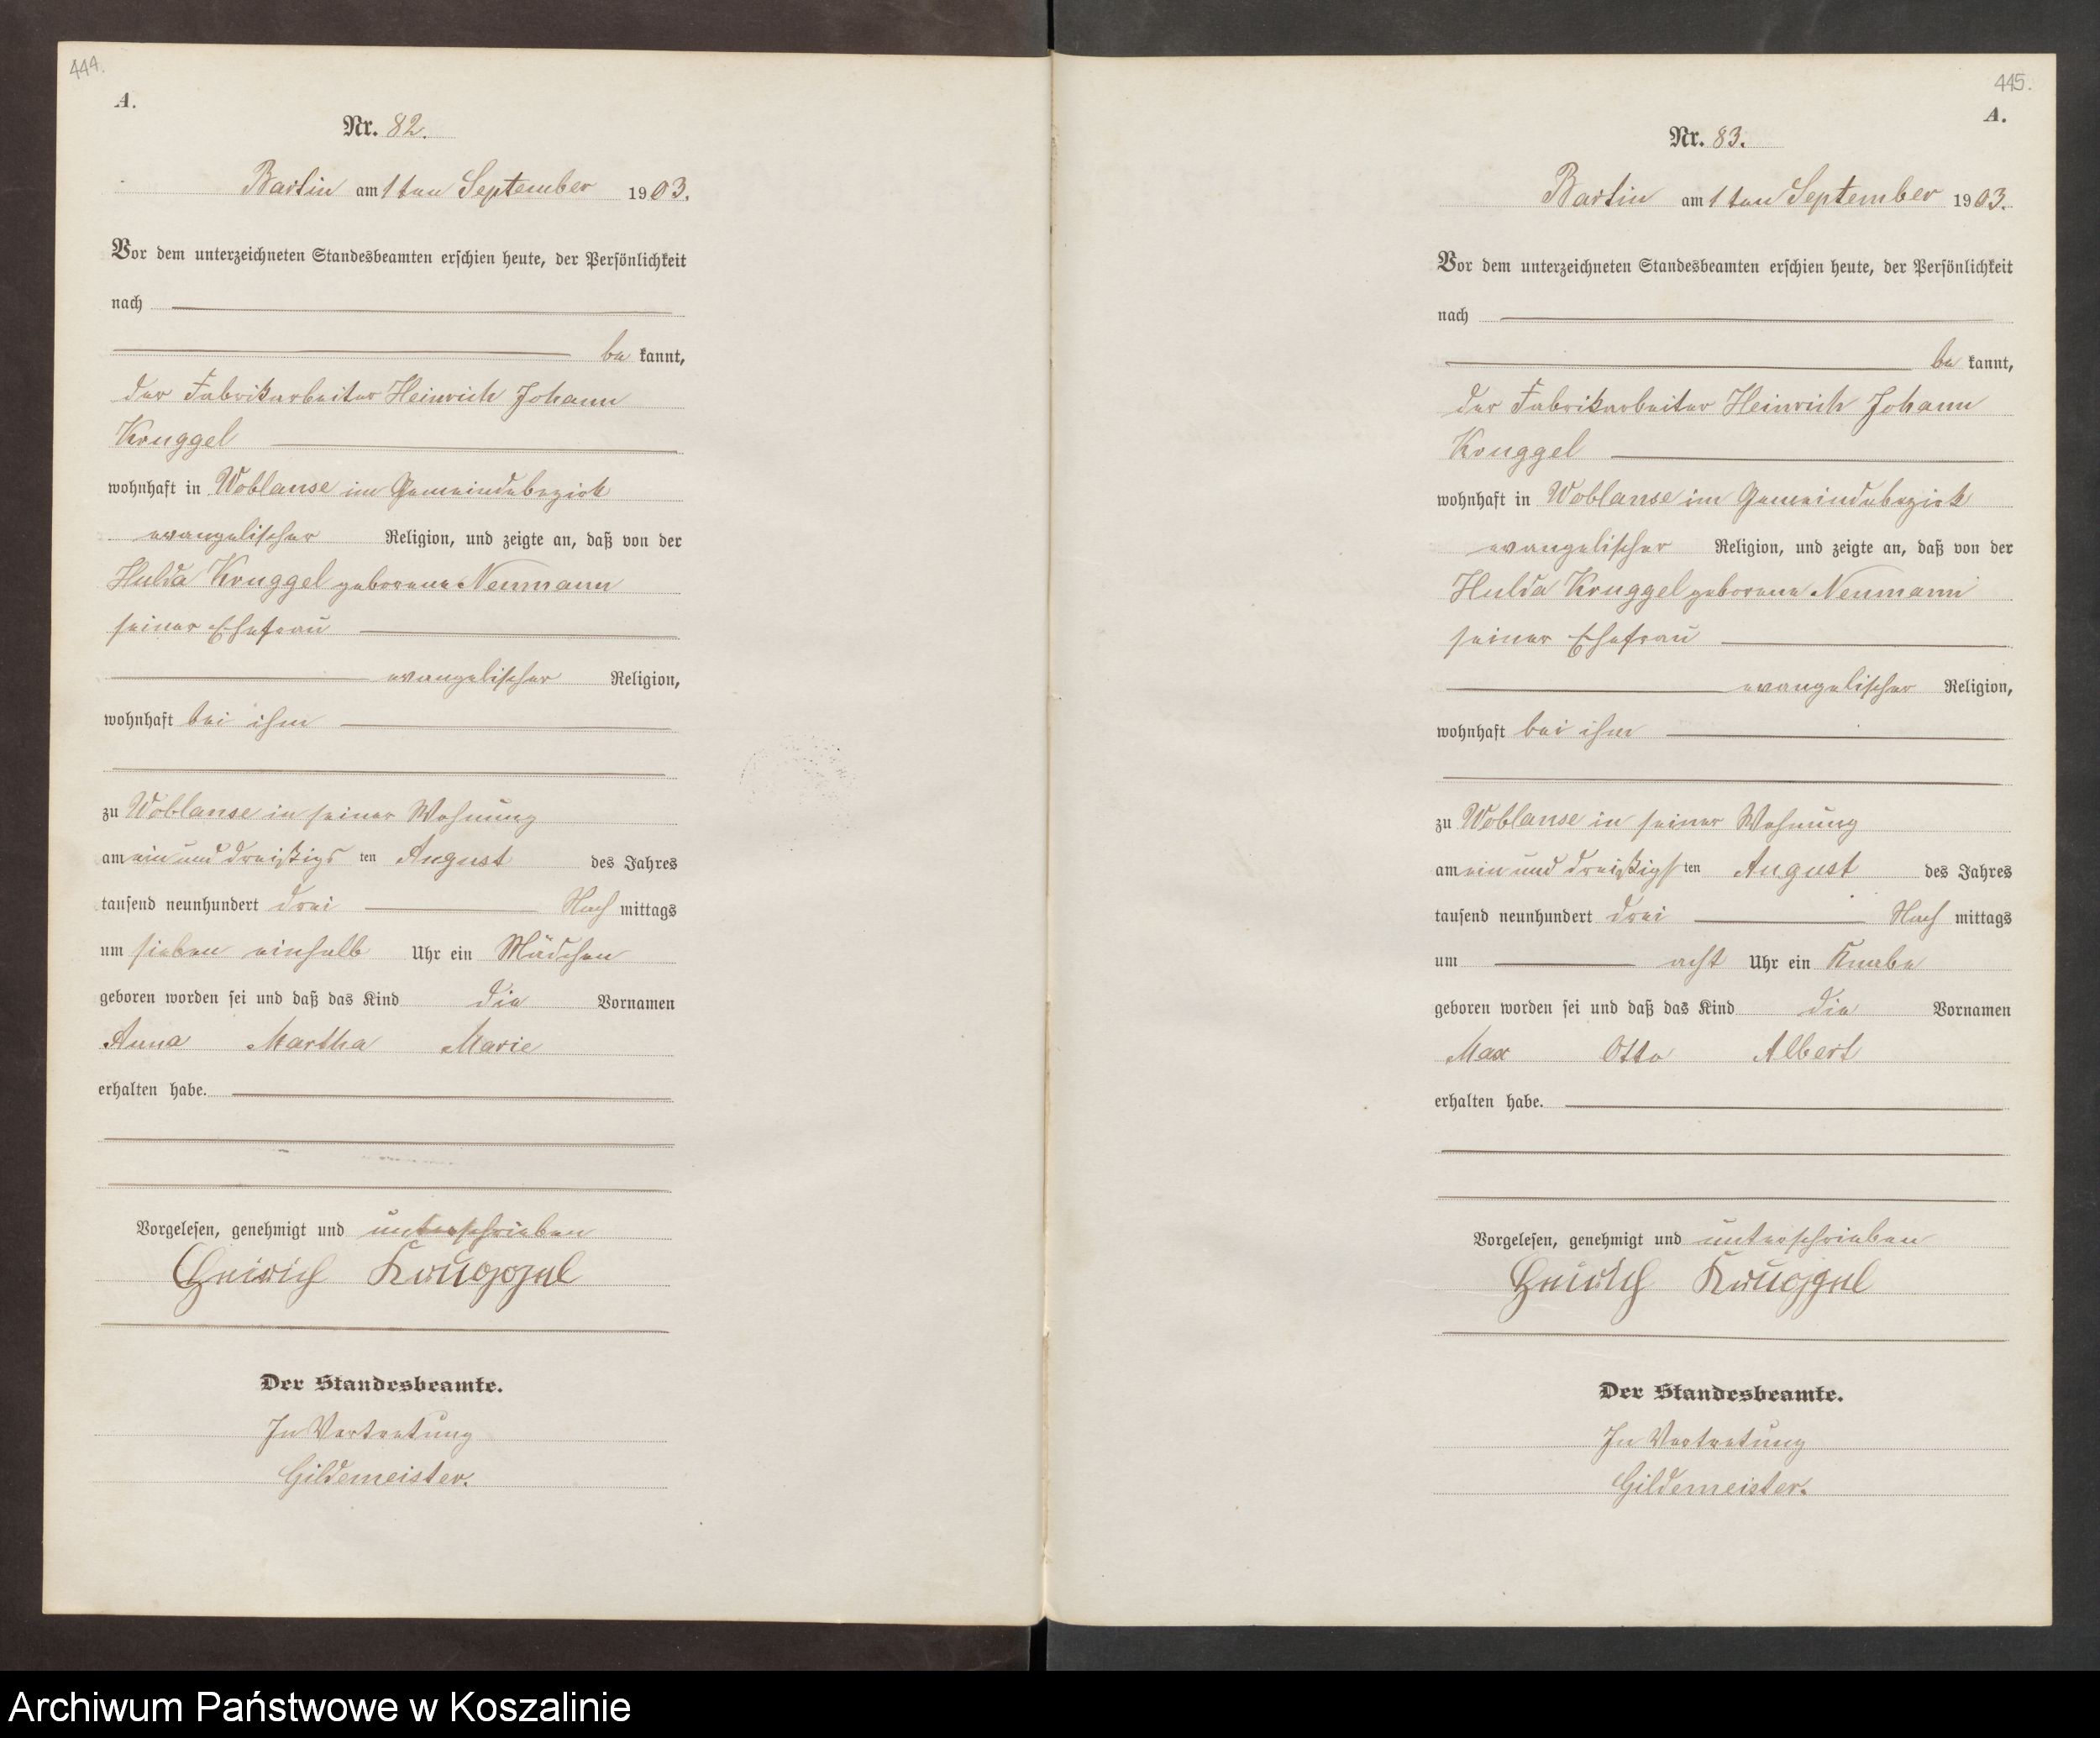 444.
A.
Nr. 82.
Bartin am 1ten September 1903.
Vor dem unterzeichneten Standesbeamten erschien heute, der Persönlichkeit
nach
be kannt,
der Fabrikarbeiter Heinrich Johann
Kruggel
wohnhaft in Woblanse im Gemeindebezirk
evangelischer Religion, und zeigte an, daß von der
Hulda Kruggel geborene Neumann
seiner Ehefrau
evangelischer Religion,
wohnhaft bei ihm
zu Woblanse in seiner Wohnung
am ein und dreißigs ten August des Jahres
tausend neunhundert drei Nach mittags
um sieben einhalb Uhr ein Mädchen
geboren worden sei und daß das Kind die Vornamen
Anna Martha Marie
erhalten habe.
Vorgelesen, genehmigt und unterschrieben
Heinrich Kruggel
Der Standesbeamte.
In Vertretung
Gildemeister.
445.
A.
Nr. 83.
Bartin am 1ten September 1903.
Vor dem unterzeichneten Standesbeamten erschien heute, der Persönlichkeit
nach
be kannt,
der Fabrikarbeiter Heinrich Johann
Kruggel
wohnhaft in Woblanse im Gemeindebezirk
evangelischer Religion, und zeigte an, daß von der
Hulda Kruggel geborene Neumann
seiner Ehefrau
evangelischer Religion,
wohnhaft bei ihm
zu Woblanse in seiner Wohnung
am ein und dreißigs ten August des Jahres
tausend neunhundert drei Nach mittags
um acht Uhr ein Knabe
geboren worden sei und daß das Kind die Vornamen
Max Otto Albert
erhalten habe.
Vorgelesen, genehmigt und unterschrieben
Heinrich Kruggel
Der Standesbeamte.
In Vertretung
Gildemeister.
Archiwum Państwowe w Koszalinie